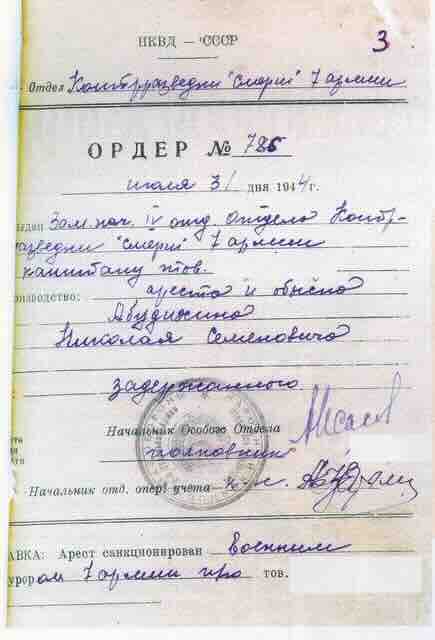 НКВД — СССР
3
Отдел Контрразведки "Смерш" 7 армии
ОРДЕР № 785
июля 31 дня 1944 г.
Зам. нач. IV отд. Отдела Контр-
разведки "Смерш" 7 армии
капитану тов.
оизводство: ареста и обыска
Абудихина
Николая Семеновича
задержанного
Начальник Особого Отдела
полковник
Начальник отд. опер. учета
АВКА: Арест санкционирован Военным
урором 7 армии тов.